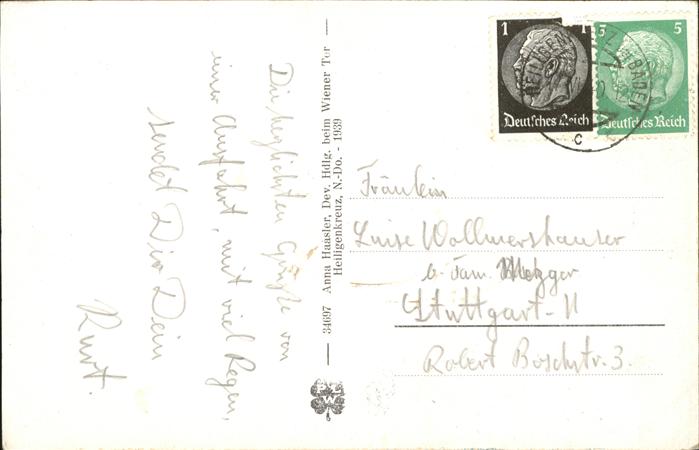 Die herzlichsten Grüße von
einer Ausfahrt, mit viel Regen,
sendet Dir Dein
Kurt.
34697 Anna Haasler, Dev. Hdlg. beim Wiener Tor
Heiligenkreuz, N.-Do. - 1939
W
1 1
Deutsches Reich
5 5
Deutsches Reich
HEILIGEN Z BADEN
c
Fräulein
Luise Wollmershauser
b. Fam. Metzger
Stuttgart-N
Robert Boschstr. 3.